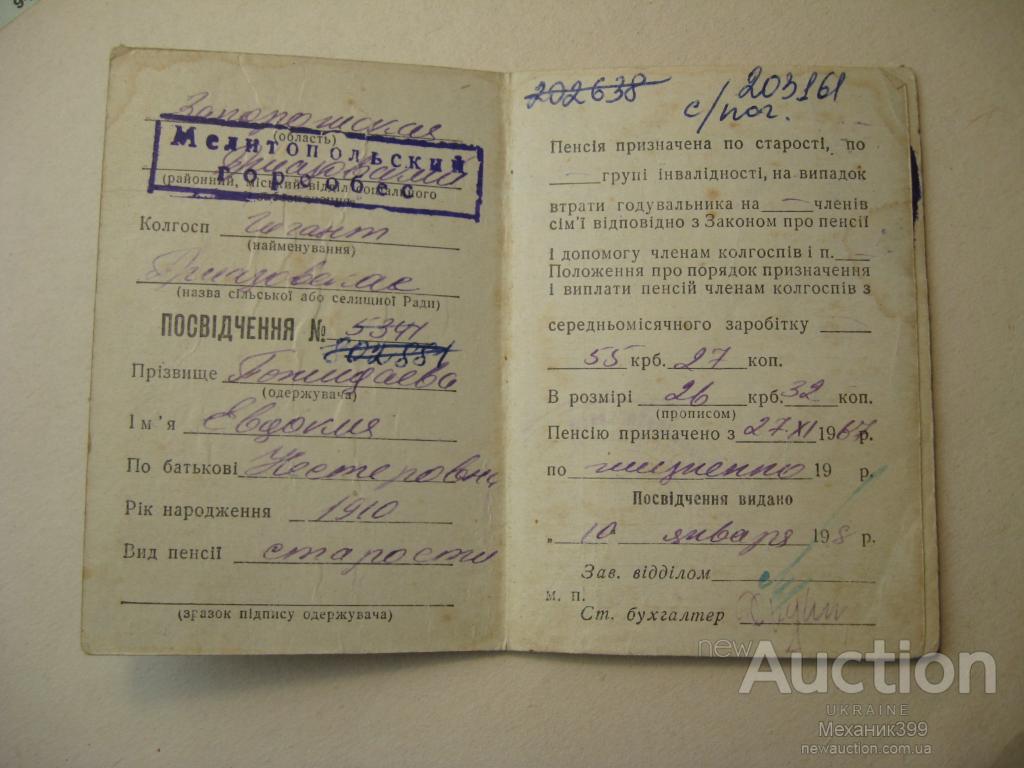 Запорожская
(область)
Мелитопольский
горсобес
(районний, міський відділ соціального
Колгосп Гигант
(найменування)
(назва сільської або селищної Ради)
ПОСВІДЧЕННЯ № 5341
802881
Прізвище Пожидаева
(одержувача)
Ім'я Евдокия
По батькові Нестеровна
Рік народження 1910
Вид пенсії старости
(зразок підпису одержувача)
202638 203161
с/пог.
Пенсія призначена по старості, по
групі інвалідності, на випадок
втрати годувальника на членів
сім'ї відповідно з Законом про пенсії
і допомогу членам колгоспів і п.
Положення про порядок призначення
і виплати пенсій членам колгоспів з
середньомісячного заробітку
55 крб. 27 коп.
В розмірі 26 крб. 32 коп.
(прописом)
Пенсію призначено з 27 XI 1967 р.
по 19 р.
Посвідчення видано
„ 10 января 198 р.
Зав. відділом
м. п.
Ст. бухгалтер
newAuction
UKRAINE
Механик399
newauction.com.ua